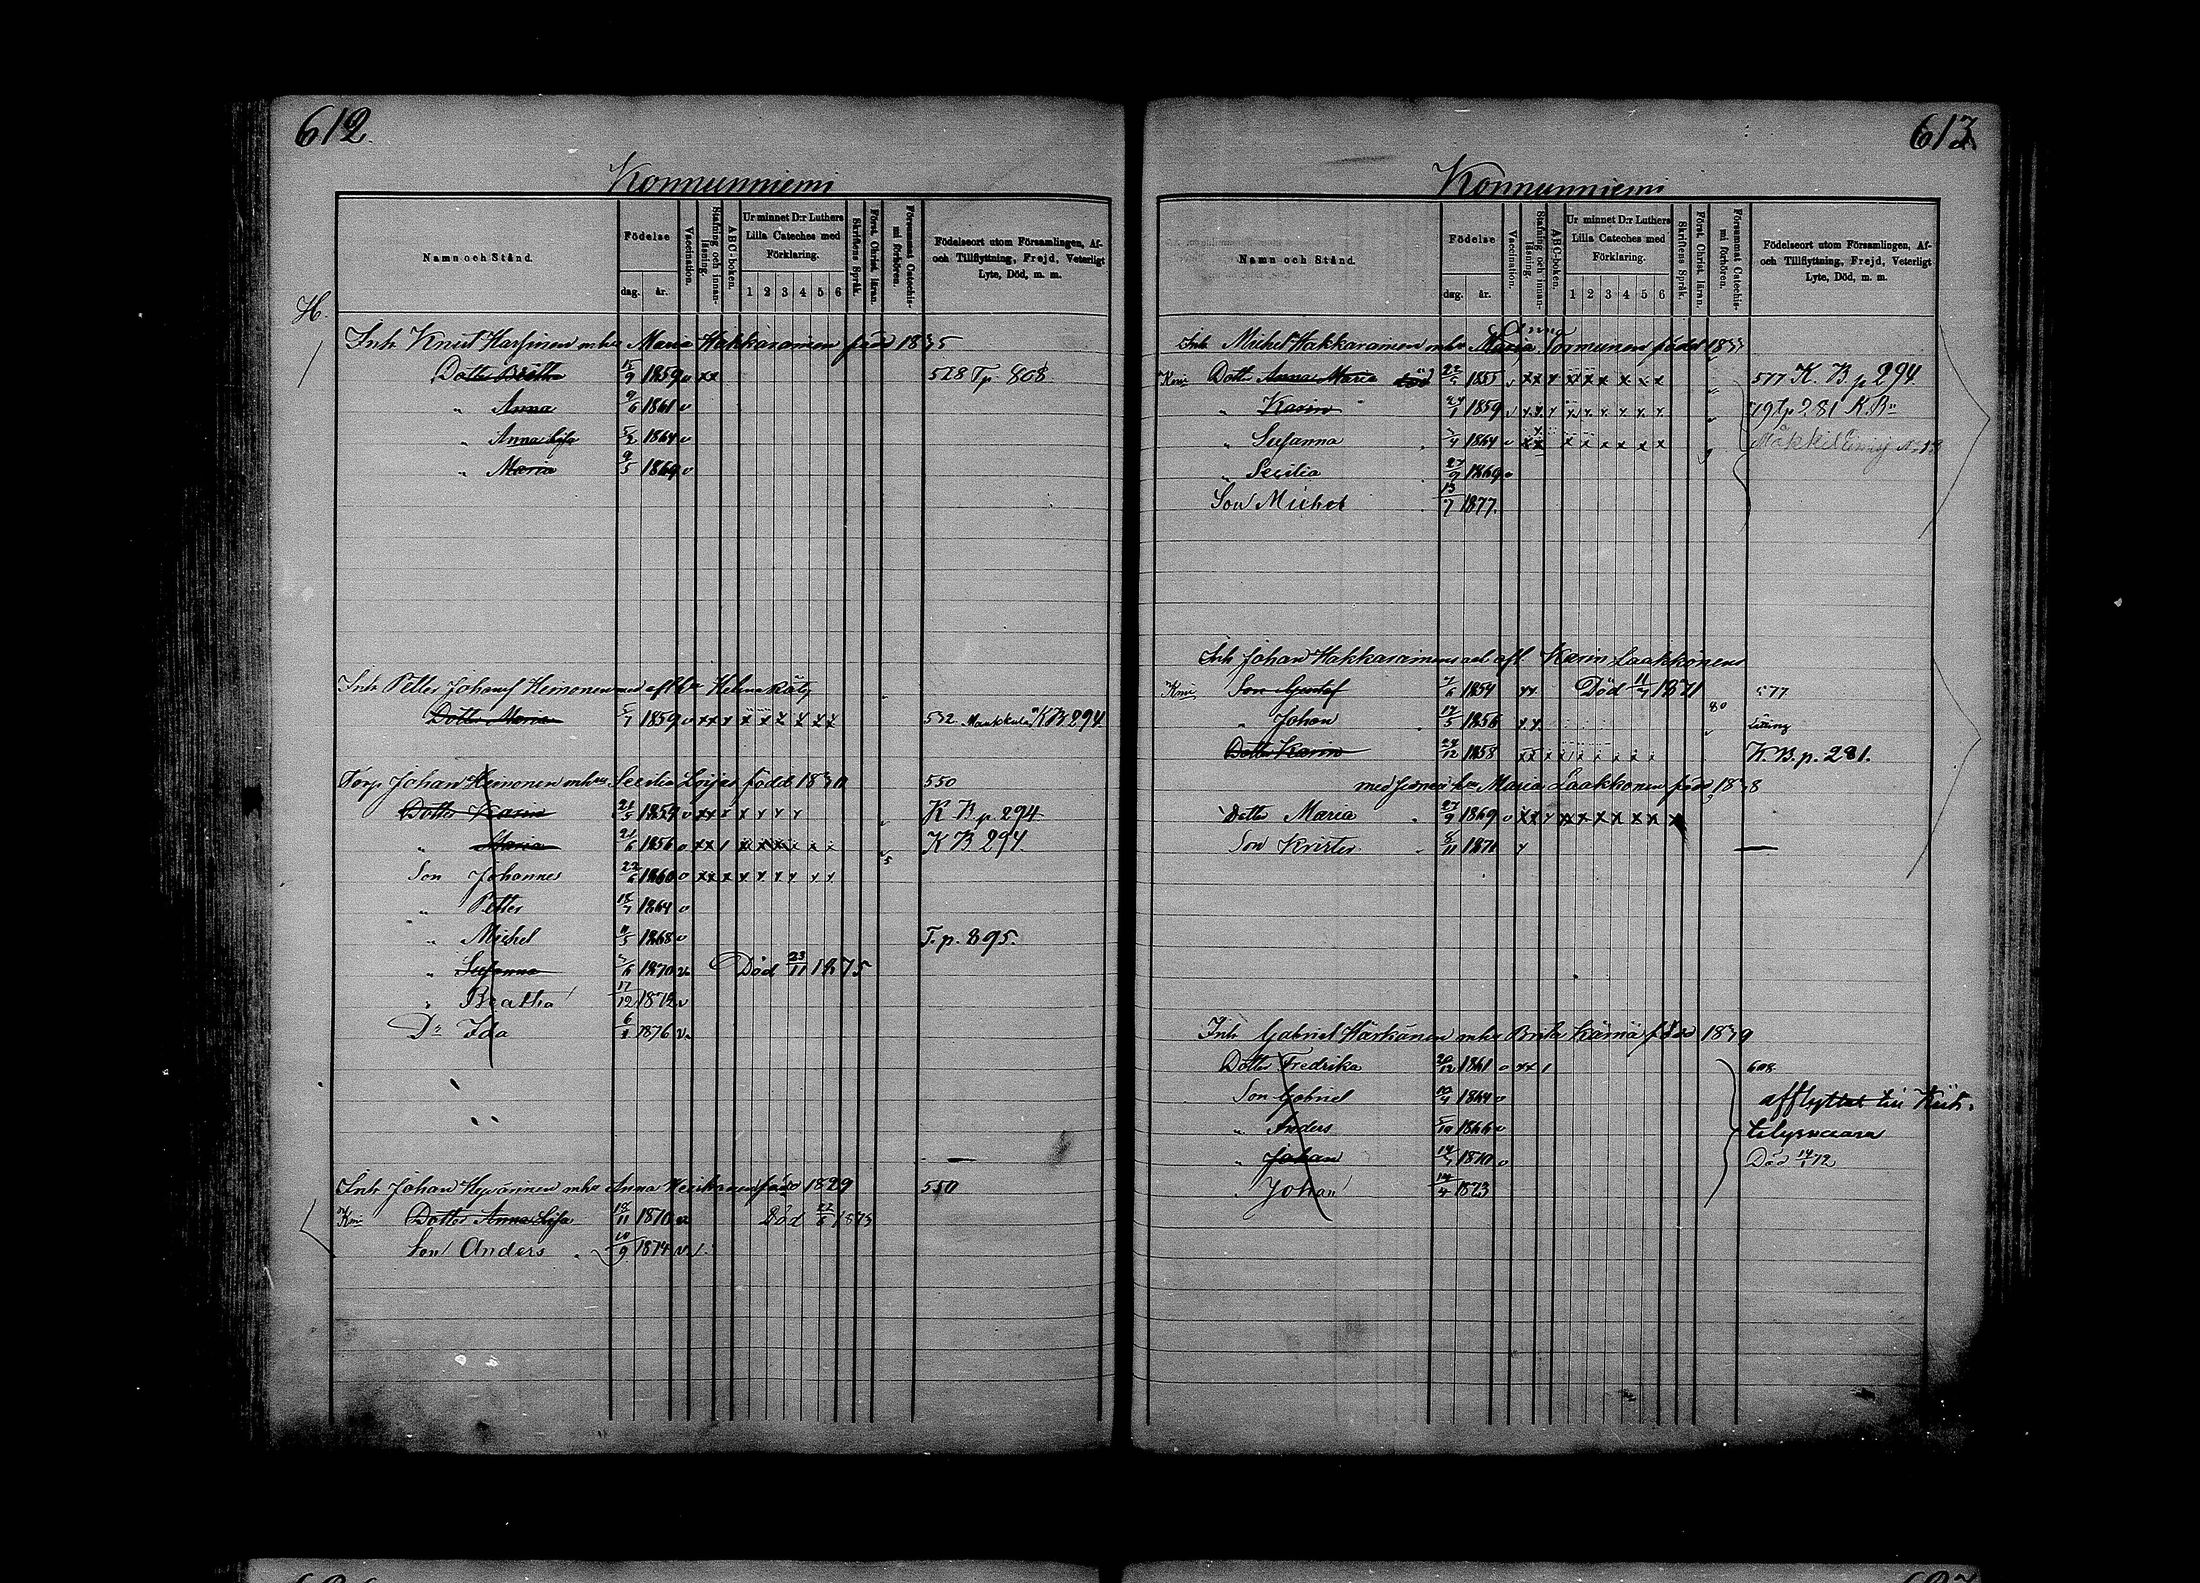 612.
Konnunniemi
Namn och Stånd.
Födelse
dag. år.
Vaccination.
Stafning och innan-läsning.
ABC-boken.
Ur minnet D:r Luthers Lilla Cateches med Förklaring.
1 2 3 4 5 6
Skriftens Språk.
Först. Christ. läran.
Försummat Catechis-mi förhören.
Födelseort utom Församlingen, Af-
och Tillflyttning, Frejd, Veterligt
Lyte, Död, m. m.
H.
Inh Knut Harjinen mhu Maria Hakkarainen född 1835
Dotter Britha 15/9 1859 v xx 528 Tp 808
" Anna 9/6 1861 v
" Anna Lisa 5/2 1864 v
" Maria 9/5 1869 v
Inh Petter Johansf Heinonen med afl hu Helena Räty
Dotter Maria 5/1 1859 v xx x x x x x x x 532 K B 294
Torp Johan Heinonen mhu Secilia Loijas född 1830 550
Dotter Karin 21/5 1859 v xx x x x x x K B p. 294
" Maria 21/6 1856 v xx K B 294
Son Johannes 22/6 1860 v xx x x x x x x x
" Petter 18/7 1864 v
" Michel 11/5 1868 v T. p. 895.
" Susanna 3/6 1870 v Död 23/11 1875
" Beatha 17/12 1872 v
Dr Ida 6/1 1876 v
Inh Johan Hyvärinen mhu Anna född 1829 550
Kmi Dotter Anna Lisa 18/11 1870 v Död 22/6 1873
Son Anders 10/9 1874 v
613
Konnunniemi
Namn och Stånd.
Födelse
dag. år.
Vaccination.
Stafning och innan-läsning.
ABC-boken.
Ur minnet D:r Luthers Lilla Cateches med Förklaring.
1 2 3 4 5 6
Skriftens Språk.
Först. Christ. läran.
Försummat Catechis-mi förhören.
Födelseort utom Församlingen, Af-
och Tillflyttning, Frejd, Veterligt
Lyte, Död, m. m.
Anna
Inh Michel Hakkarainen mhu Maria Tormunen född 1833
Kmi Dott Anna Maria 22/5 1855 v xx x x x x x x x 577 K. B. p 294
" Karin 24/1 1859 v x x x x x x x x x p 281 K.B.
" Susanna 3/4 1864 v xx x x x x x x
" Secilia 27/9 1869 v
Son Michel 13/7 1877.
Inh Johan Hakkarainens afl Karin Laakkonens
Kmi Son Gustaf 7/6 1854 xx Död 11/7 1871 577
" Johan 17/5 1856 x x 80
Dotter Karin 24/12 1858 K. B. p. 281.
med hu Maria Laakkonen född 1838
Dotter Maria 27/9 1869 v xx x xx x x x x x
Son Krister 8/11 1871 x
Inh Gabriel Härkönen mhu Brita Kärnä född 1839
Dotter Fredrika 26/12 1861 v xx 1 608
Son Gabriel 10/4 1864 v afflyttat till Kiih-
" Anders 5/10 1866 v telysvaara
" Johan 14/4 1870 v Död 14/1 72
" Johan 14/4 1873